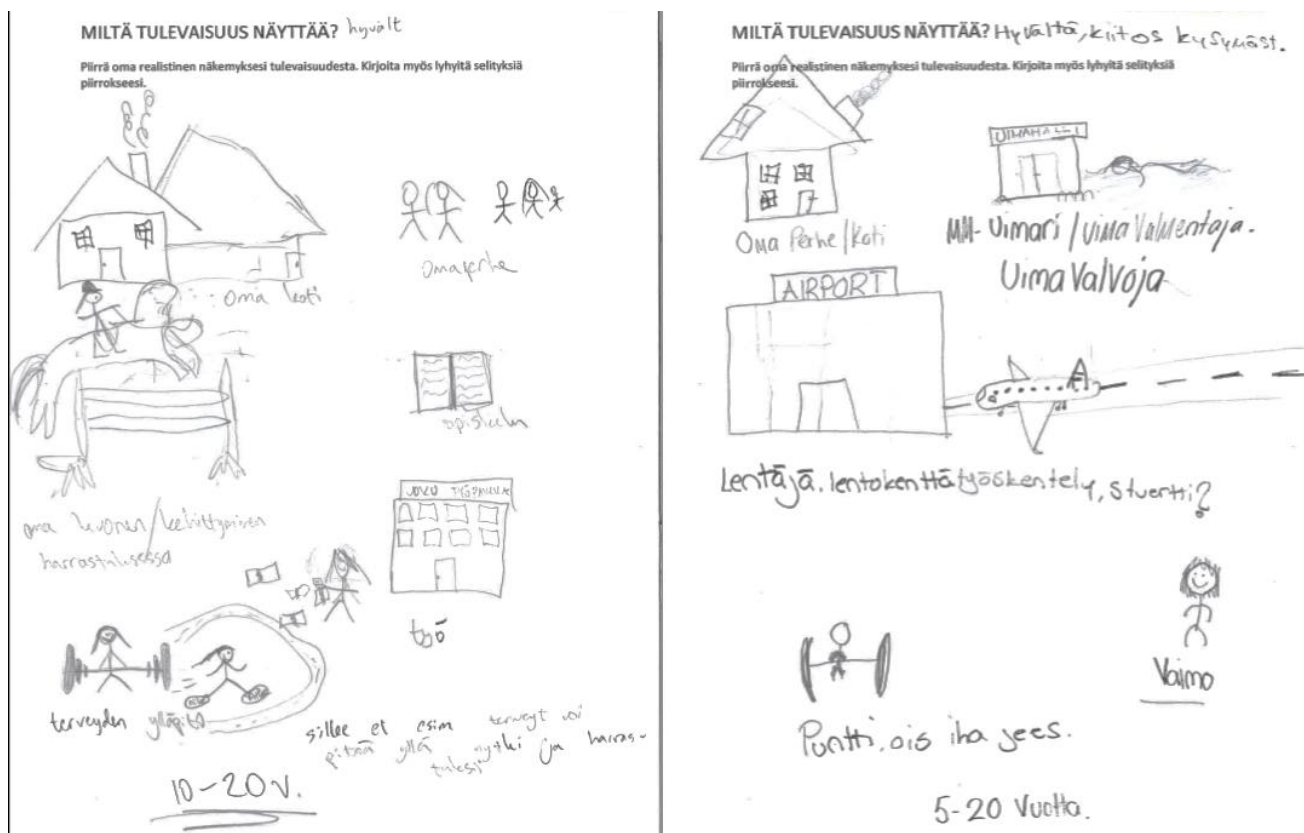 MILTÄ TULEVAISUUS NÄYTTÄÄ? hyvält
Piirrä oma realistinen näkemyksesi tulevaisuudesta. Kirjoita myös lyhyitä selityksiä
piirrokseesi.
oma koti
Oma perhe
opiskelu
oma hevonen/kehittyminen
harrastuksessa
JOKU TYÖPAIKKA
työ
terveyden ylläpito
sillee et esim terveyt voi
pitää yllä nytki ja harras-
tuksii
10-20 v.
MILTÄ TULEVAISUUS NÄYTTÄÄ? Hyvältä, kiitos kysymäst.
Piirrä oma realistinen näkemyksesi tulevaisuudesta. Kirjoita myös lyhyitä selityksiä
piirrokseesi.
Oma Perhe/koti
UIMAHALLI
MM-Uimari/Uima Valmentaja.
Uima Valvoja
AIRPORT
Lentäjä, lentokenttätyöskentely, Stuertti?
Puntti, ois iha jees.
Vaimo
5-20 Vuotta.